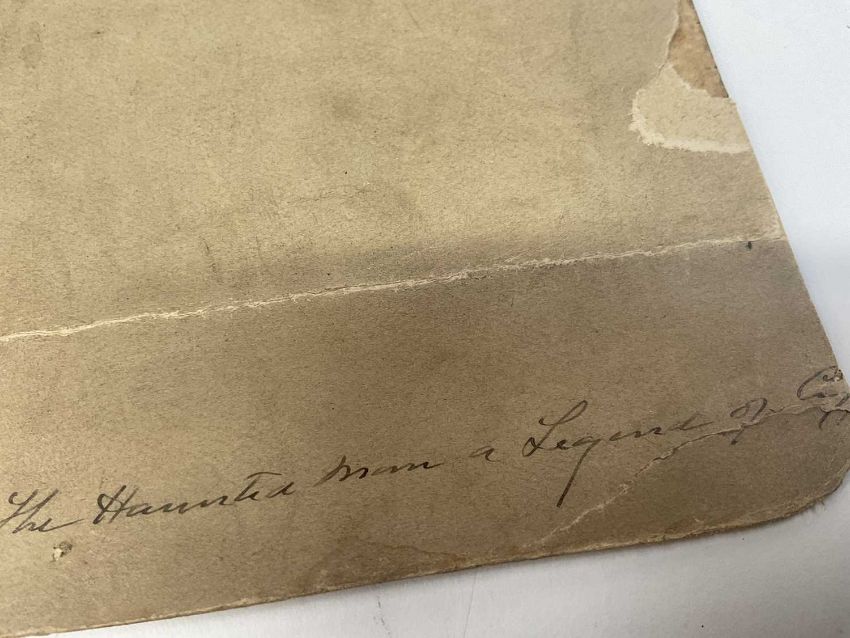 The Haunted man a Legend of